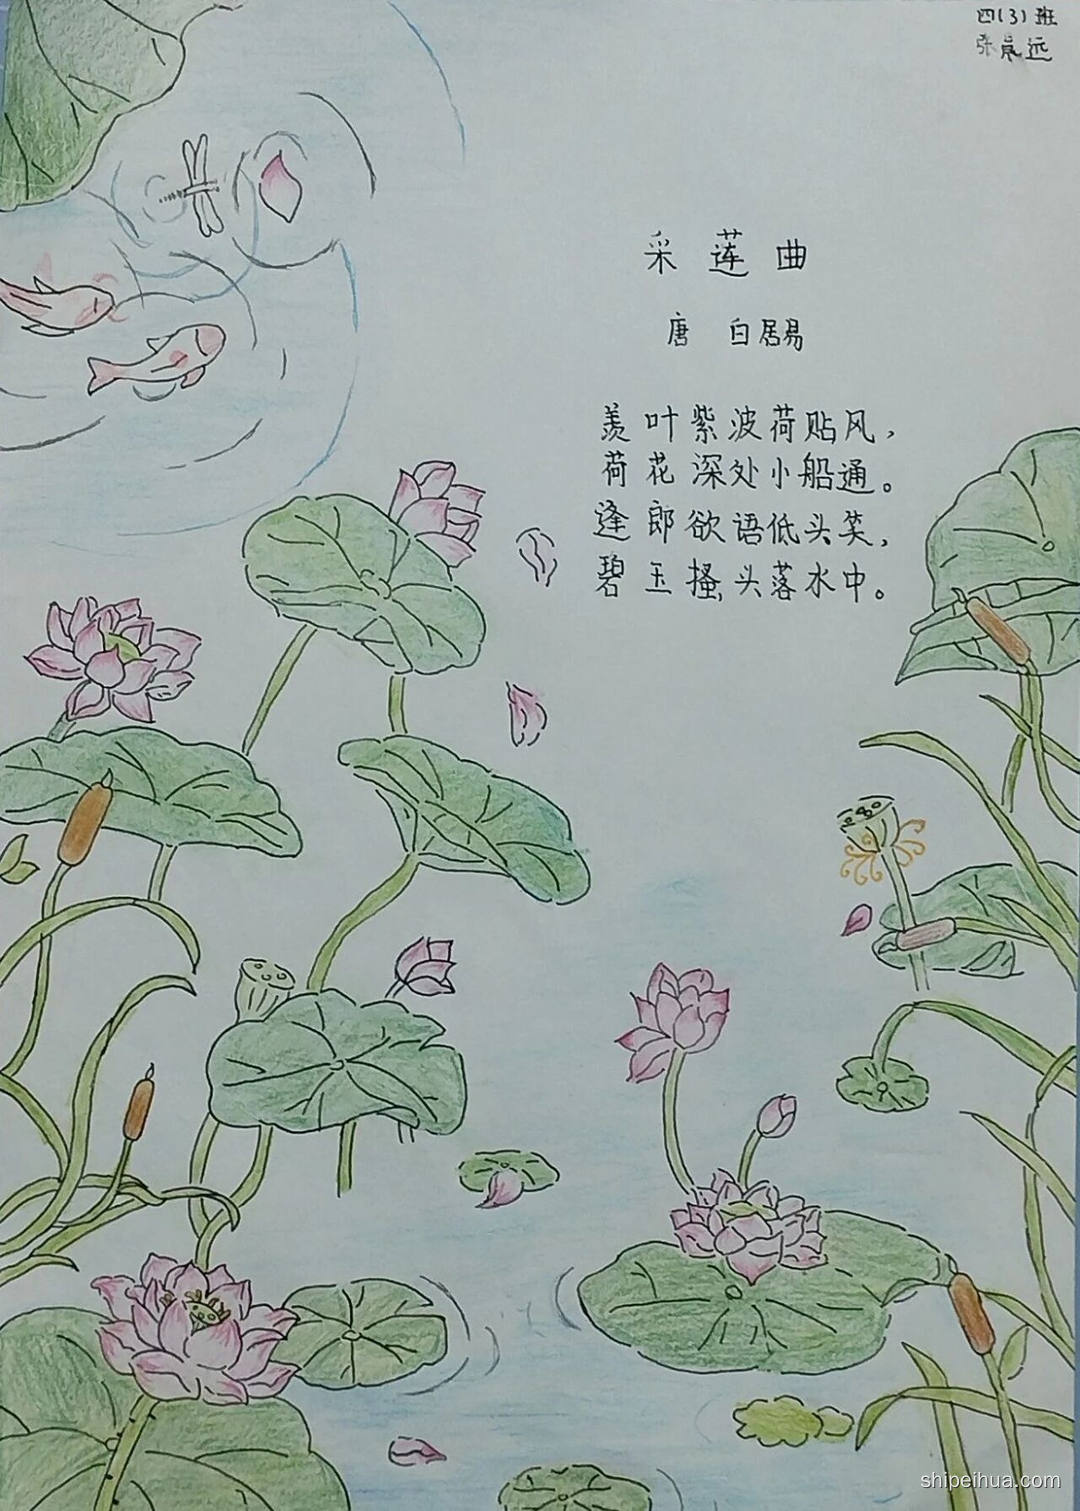 四(3)班
张宸远
采莲曲
唐 白居易
羡叶紫波荷贴风，
荷花深处小船通。
逢郎欲语低头笑，
碧玉搔头落水中。
shipeihua.com